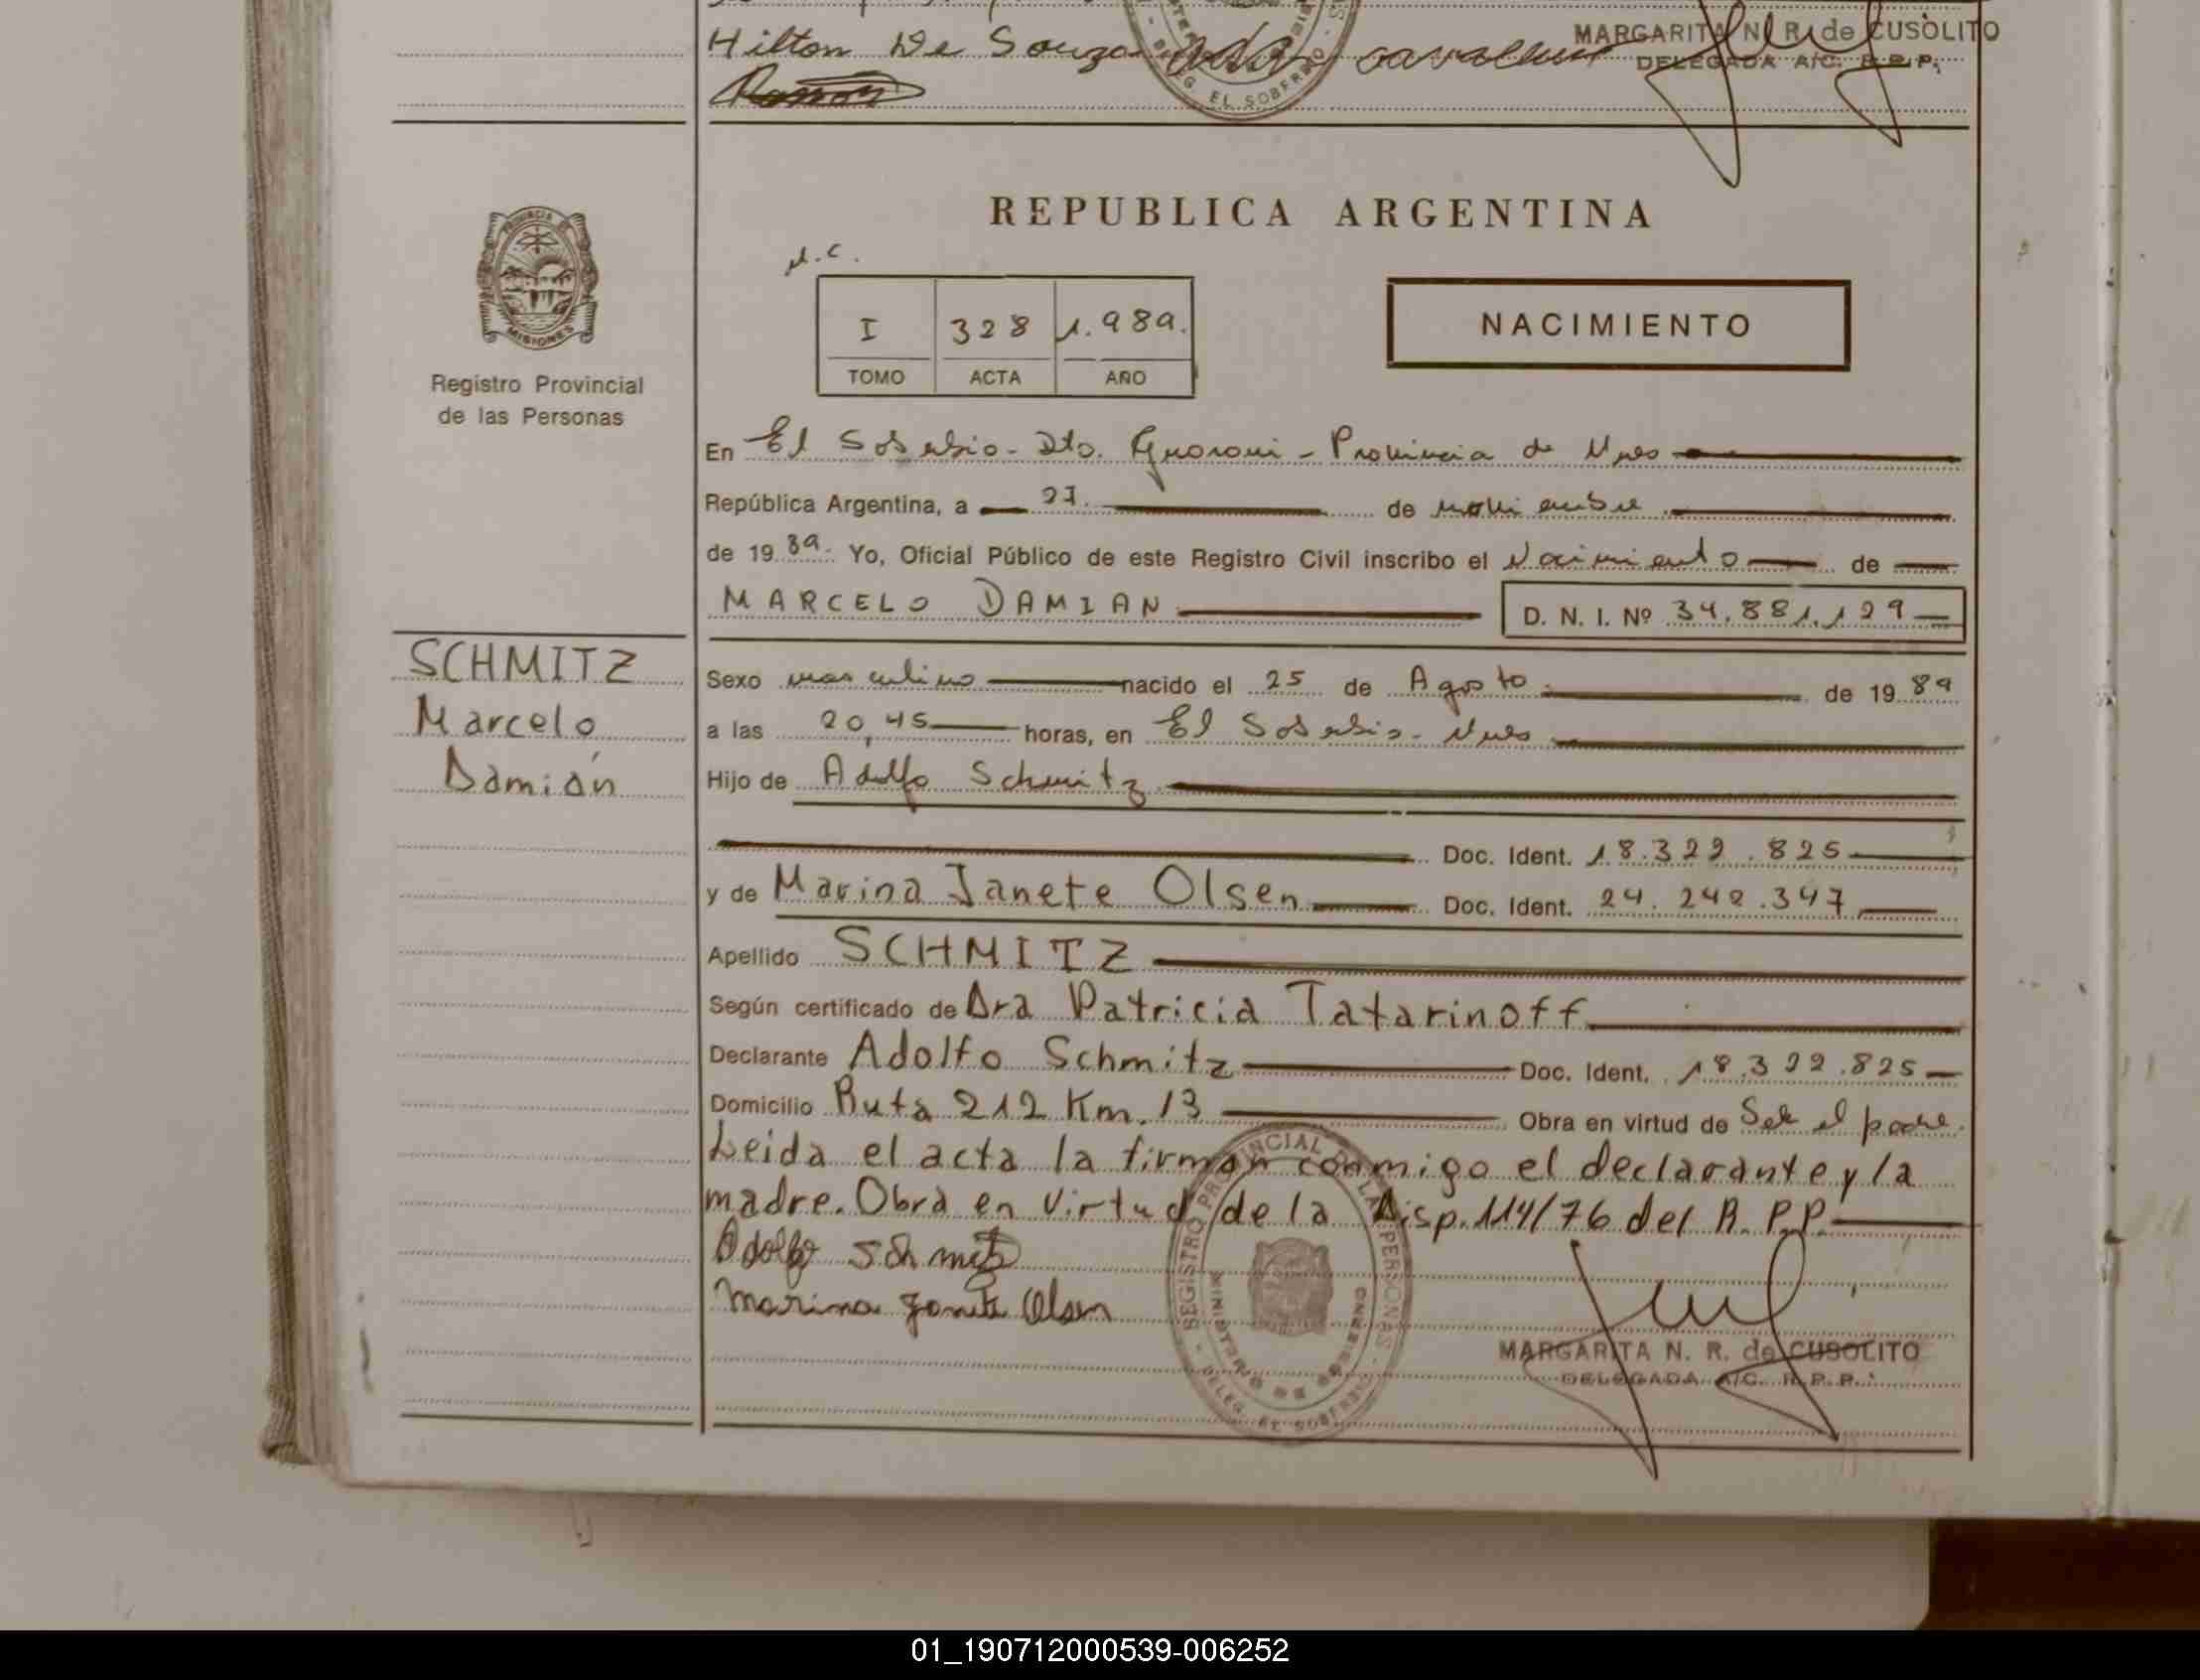 Hilton De Souza
MARGARITA N. R. de CUSOLITO
DELEGADA A/C. R.P.P.
DELEG. EL SOBERBIO
PROVINCIA DE
MISIONES
Registro Provincial
de las Personas
REPUBLICA ARGENTINA
I 328 1.989.
TOMO ACTA AÑO
NACIMIENTO
En El Soberbio - Dto. Guarani - Provincia de Mnes
República Argentina, a 27. de noviembre
de 19 89. Yo, Oficial Público de este Registro Civil inscribo el Nacimiento de
MARCELO DAMIAN D. N. I. Nº 34.881.129
SCHMITZ
Marcelo
Damián
Sexo masculino nacido el 25 de Agosto de 19 89
a las 20,45 horas, en El Soberbio - Mnes
Hijo de Adolfo Schmitz
Doc. Ident. 18.322.825
y de Marina Janete Olsen Doc. Ident. 24.242.347
Apellido SCHMITZ
Según certificado de Dra Patricia Tatarinoff
Declarante Adolfo Schmitz Doc. Ident. 18.322.825
Domicilio Ruta 212 Km. 13 Obra en virtud de Ser el padre.
Leida el acta la firman conmigo el declarante y la
madre. Obra en virtud de la Disp. 114/76 del R. P.P.
Adolfo Schmitz
Marina Janete Olsen
REGISTRO PROVINCIAL DE LAS PERSONAS - DELEG. EL SOBERBIO -
MINISTERIO DE GOBIERNO
MARGARITA N. R. de CUSOLITO
DELEGADA A/C. R.P.P.
01_190712000539-006252